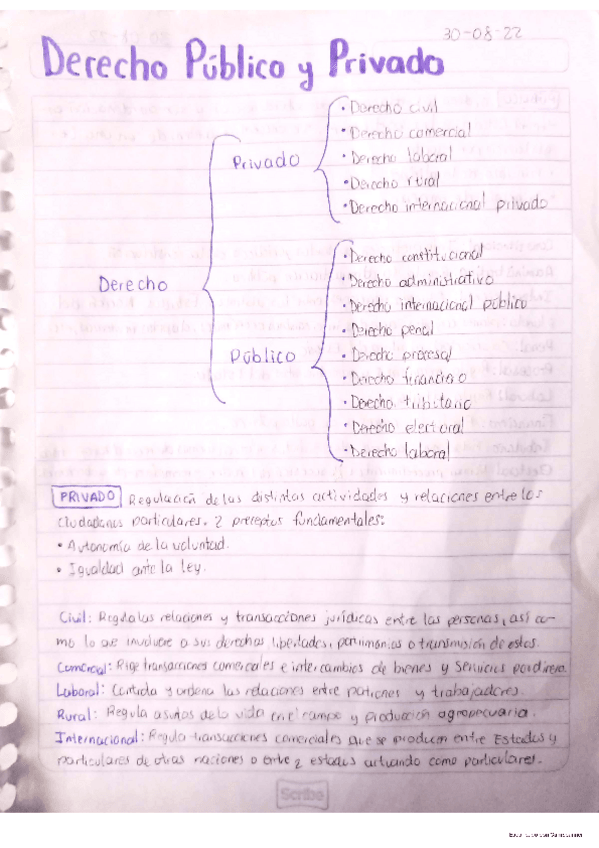 30-08-22
Derecho Público y Privado
Derecho
Privado
• Derecho civil
• Derecho comercial
• Derecho laboral
• Derecho rural
• Derecho internacional privado
Público
• Derecho constitucional
• Derecho administrativo
• Derecho internacional público
• Derecho penal
• Derecho procesal
• Derecho financiero
• Derecho tributario
• Derecho electoral
• Derecho laboral
PRIVADO Regulación de las distintas actividades y relaciones entre los
ciudadanos particulares. 2 preceptos fundamentales:
• Autonomía de la voluntad.
• Igualdad ante la ley.
Civil: Regula las relaciones y transacciones jurídicas entre las personas, así co-
mo lo que involucre a sus derechos libertades, patrimonios o transmisión de estos.
Comercial: Rige transacciones comerciales e intercambios de bienes y servicios
Laboral: Controla y ordena las relaciones entre patrones y trabajadores.
Rural: Regula asuntos de la vida en el campo y producción agropecuaria.
Internacional: Regula transacciones comerciales que se producen entre Estados y
particulares de otras naciones o entre 2 estados actuando como particulares.
Scribe